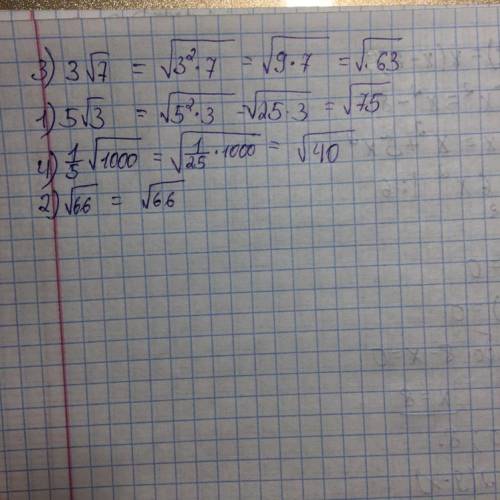 3) 3√7 = √3²·7 = √9·7 = √63
1) 5√3 = √5²·3 - √25·3 = √75
4) 1/5 √1000 = √1/25·1000 = √40
2) √66 = √66